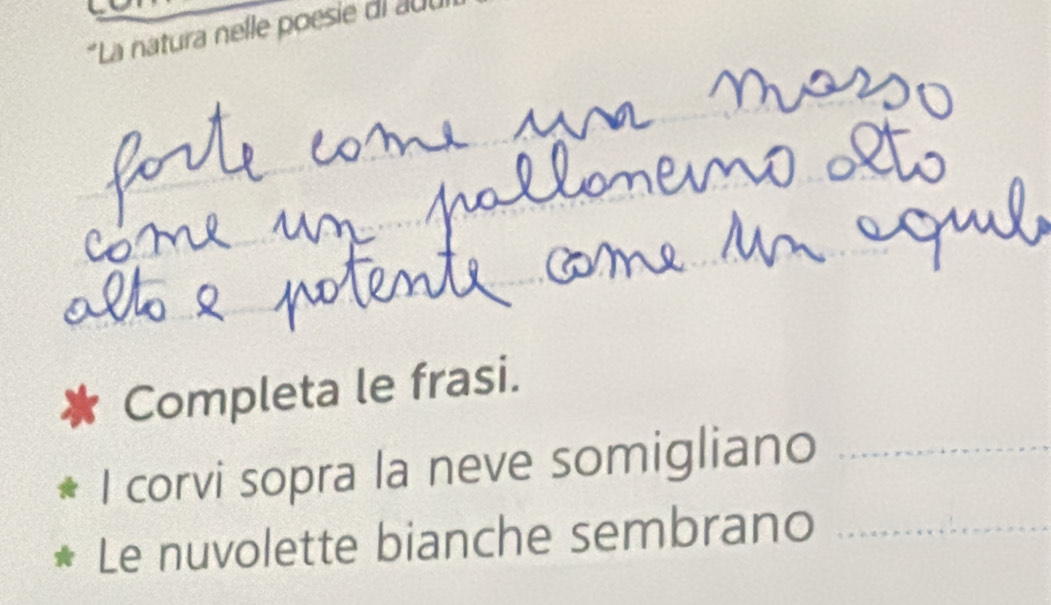 "La natura nelle poesie di
forte come un masso
come un palloncino alto
alto e potente come un
Completa le frasi.
* I corvi sopra la neve somigliano
* Le nuvolette bianche sembrano